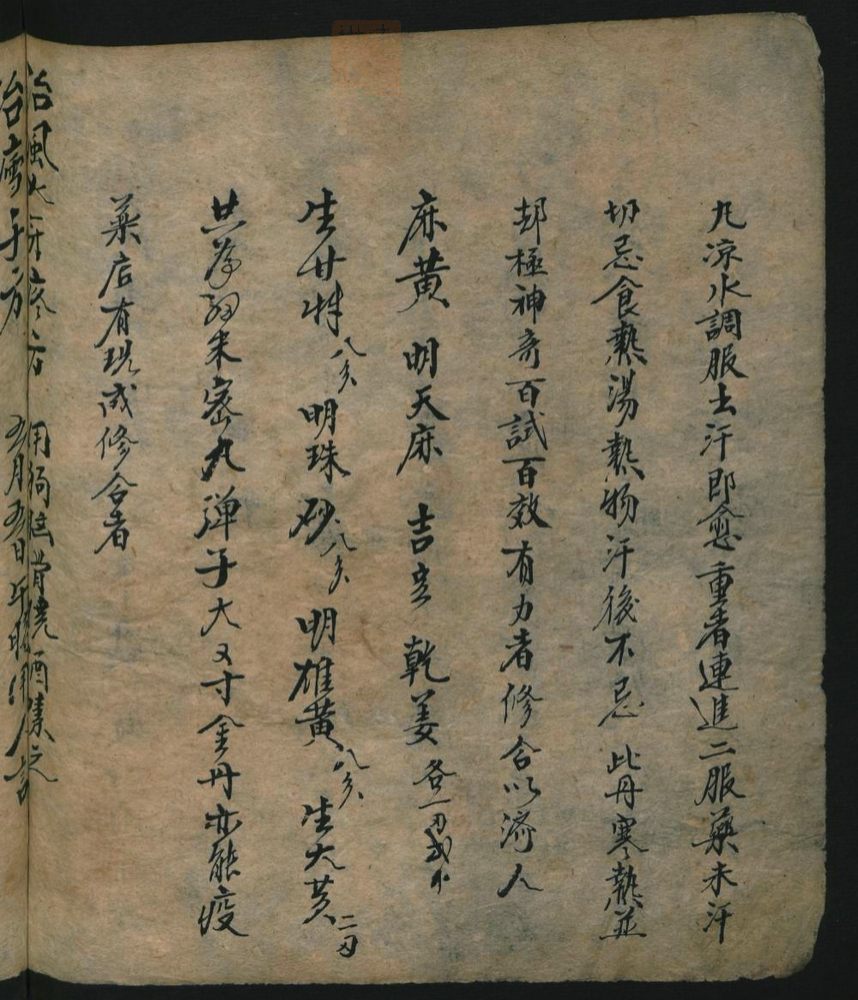 丸凉水調服出汗即愈重者連進二服藥未汗
切忌食熱湯熱物汗後不忌 此丹寒熱並
却極神奇百試百效有力者修合以濟人
麻黄 明天麻 吉 乾姜 各一刃
生甘 八 明珠砂 八 明雄黄 八 生大黄 二刃
共為細末密丸弹子大 又寸金丹亦能疫
藥店有現成修合者
治風 用狗 骨燒酒
治瘧子方 五月五日午時用